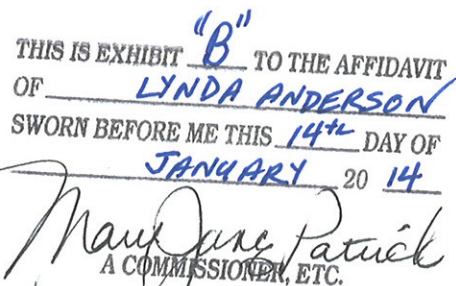 THIS IS EXHIBIT "B" TO THE AFFIDAVIT
OF LYNDA ANDERSON
SWORN BEFORE ME THIS 14th DAY OF
JANUARY 20 14
Mary Jane Patrick
A COMMISSIONER, ETC.